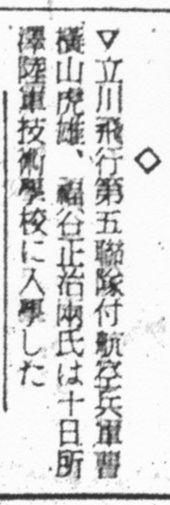 ◇
▽立川飛行第五聯隊付航空兵軍曹
横山虎雄、福谷正治兩氏は十日所
澤陸軍技術學校に入學した